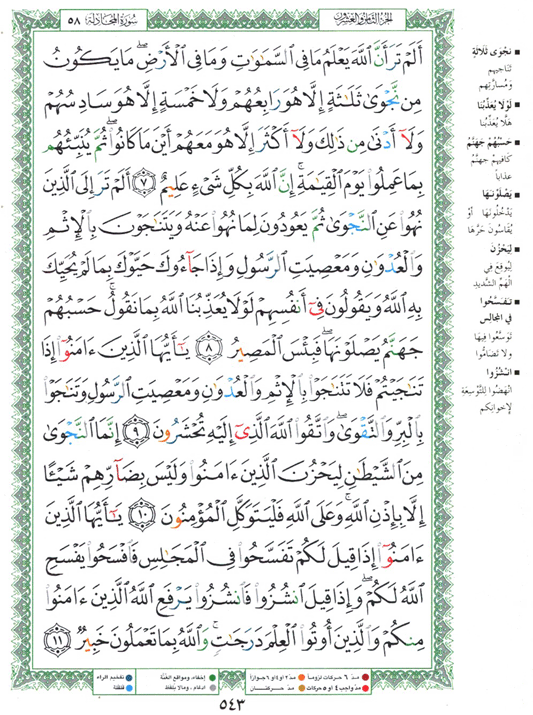 الجزء الثامن والعشرون
سورة المجادلة ٥٨
أَلَمْ تَرَ أَنَّ ٱللَّهَ يَعْلَمُ مَا فِى ٱلسَّمَٰوَٰتِ وَمَا فِى ٱلْأَرْضِ ۖ مَا يَكُونُ
مِن نَّجْوَىٰ ثَلَٰثَةٍ إِلَّا هُوَ رَابِعُهُمْ وَلَا خَمْسَةٍ إِلَّا هُوَ سَادِسُهُمْ
وَلَآ أَدْنَىٰ مِن ذَٰلِكَ وَلَآ أَكْثَرَ إِلَّا هُوَ مَعَهُمْ أَيْنَ مَا كَانُوا۟ ۖ ثُمَّ يُنَبِّئُهُم
بِمَا عَمِلُوا۟ يَوْمَ ٱلْقِيَٰمَةِ ۚ إِنَّ ٱللَّهَ بِكُلِّ شَىْءٍ عَلِيمٌ ٧ أَلَمْ تَرَ إِلَى ٱلَّذِينَ
نُهُوا۟ عَنِ ٱلنَّجْوَىٰ ثُمَّ يَعُودُونَ لِمَا نُهُوا۟ عَنْهُ وَيَتَنَٰجَوْنَ بِٱلْإِثْمِ
وَٱلْعُدْوَٰنِ وَمَعْصِيَتِ ٱلرَّسُولِ وَإِذَا جَآءُوكَ حَيَّوْكَ بِمَا لَمْ يُحَيِّكَ
بِهِ ٱللَّهُ وَيَقُولُونَ فِىٓ أَنفُسِهِمْ لَوْلَا يُعَذِّبُنَا ٱللَّهُ بِمَا نَقُولُ ۚ حَسْبُهُمْ
جَهَنَّمُ يَصْلَوْنَهَا ۖ فَبِئْسَ ٱلْمَصِيرُ ٨ يَٰٓأَيُّهَا ٱلَّذِينَ ءَامَنُوٓا۟ إِذَا
تَنَٰجَيْتُمْ فَلَا تَتَنَٰجَوْا۟ بِٱلْإِثْمِ وَٱلْعُدْوَٰنِ وَمَعْصِيَتِ ٱلرَّسُولِ وَتَنَٰجَوْا۟
بِٱلْبِرِّ وَٱلتَّقْوَىٰ ۖ وَٱتَّقُوا۟ ٱللَّهَ ٱلَّذِىٓ إِلَيْهِ تُحْشَرُونَ ٩ إِنَّمَا ٱلنَّجْوَىٰ
مِنَ ٱلشَّيْطَٰنِ لِيَحْزُنَ ٱلَّذِينَ ءَامَنُوا۟ وَلَيْسَ بِضَآرِّهِمْ شَيْـًٔا
إِلَّا بِإِذْنِ ٱللَّهِ ۚ وَعَلَى ٱللَّهِ فَلْيَتَوَكَّلِ ٱلْمُؤْمِنُونَ ١٠ يَٰٓأَيُّهَا ٱلَّذِينَ
ءَامَنُوٓا۟ إِذَا قِيلَ لَكُمْ تَفَسَّحُوا۟ فِى ٱلْمَجَٰلِسِ فَٱفْسَحُوا۟ يَفْسَحِ
ٱللَّهُ لَكُمْ ۖ وَإِذَا قِيلَ ٱنشُزُوا۟ فَٱنشُزُوا۟ يَرْفَعِ ٱللَّهُ ٱلَّذِينَ ءَامَنُوا۟
مِنكُمْ وَٱلَّذِينَ أُوتُوا۟ ٱلْعِلْمَ دَرَجَٰتٍ ۚ وَٱللَّهُ بِمَا تَعْمَلُونَ خَبِيرٌ ١١
■ نجوى ثلاثة
تناجيهم
ومسارّتهم
■ لولا يعذّبنا
هلّا يعذّبنا
■ حسبهم جهنّم
كافيهم جهنّم
عذابا
■ يصلونها
يدخلونها أو
يقاسون حرّها
■ ليحزن
ليوقع في
الهمّ الشديد
■ تفسّحوا
في المجالس
توسّعوا فيها
ولا تضامّوا
■ انشزوا
انهضوا للتّوسعة
لإخوانكم
مدّ ٦ حركات لزوماً
مدّ ٢ أو ٤ أو ٦ جوازاً
مدّ واجب ٤ أو ٥ حركات
مدّ حركتان
إخفاء، ومواقع الغنّة
إدغام، وما لا يلفظ
تفخيم الراء
قلقلة
٥٤٣